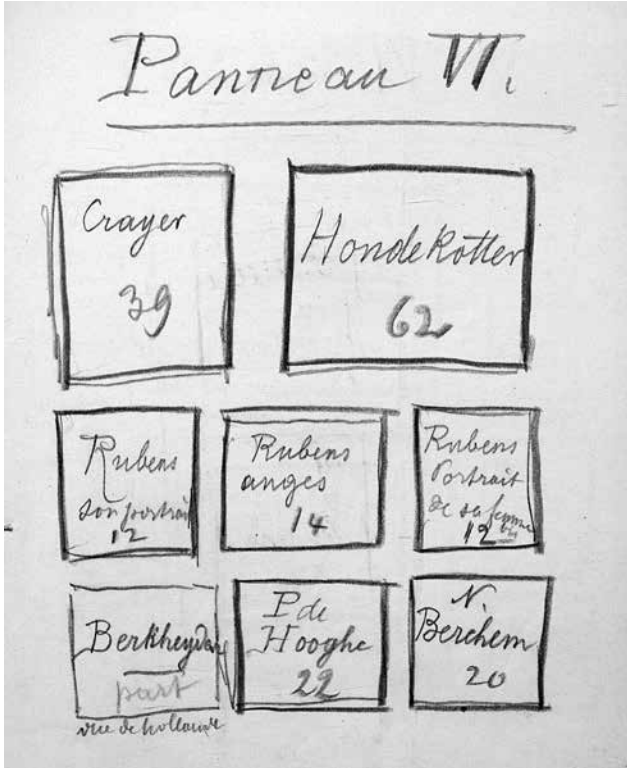 Panneau VI.
Crayer
39
HondeKotter
62
Rubens
son portrait
12
Rubens
anges
14
Rubens
Portrait
de sa femme
12
Berkheyden
part
vue de hollande
P de
Hooghe
22
N.
Berchem
20